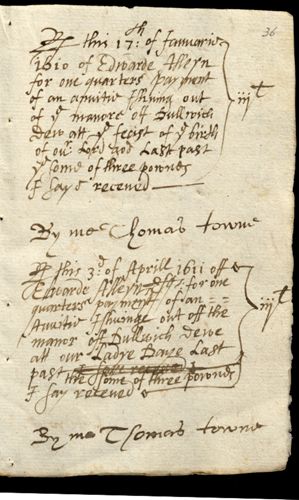 36
R this 17th of Januarie
1610 of Edwarde Alleyn
for one quarters payment
of an anuitie Ishuing out
of ye manore of Dullwich
dew att ye feast of ye birth
of our Lord god Last past
ye some of three powndes
I say receved
iij l
By me Thomas towne
R this 3d of Aprill 1611 off
Edwarde Alleyn for one
quarters payment of an ==
Anuitie Ishuinge out off the
manor off Dullwich dewe
att our Ladye Daye Last
past
the some of three powndes
I say receved
iij l
By me Thomas towne